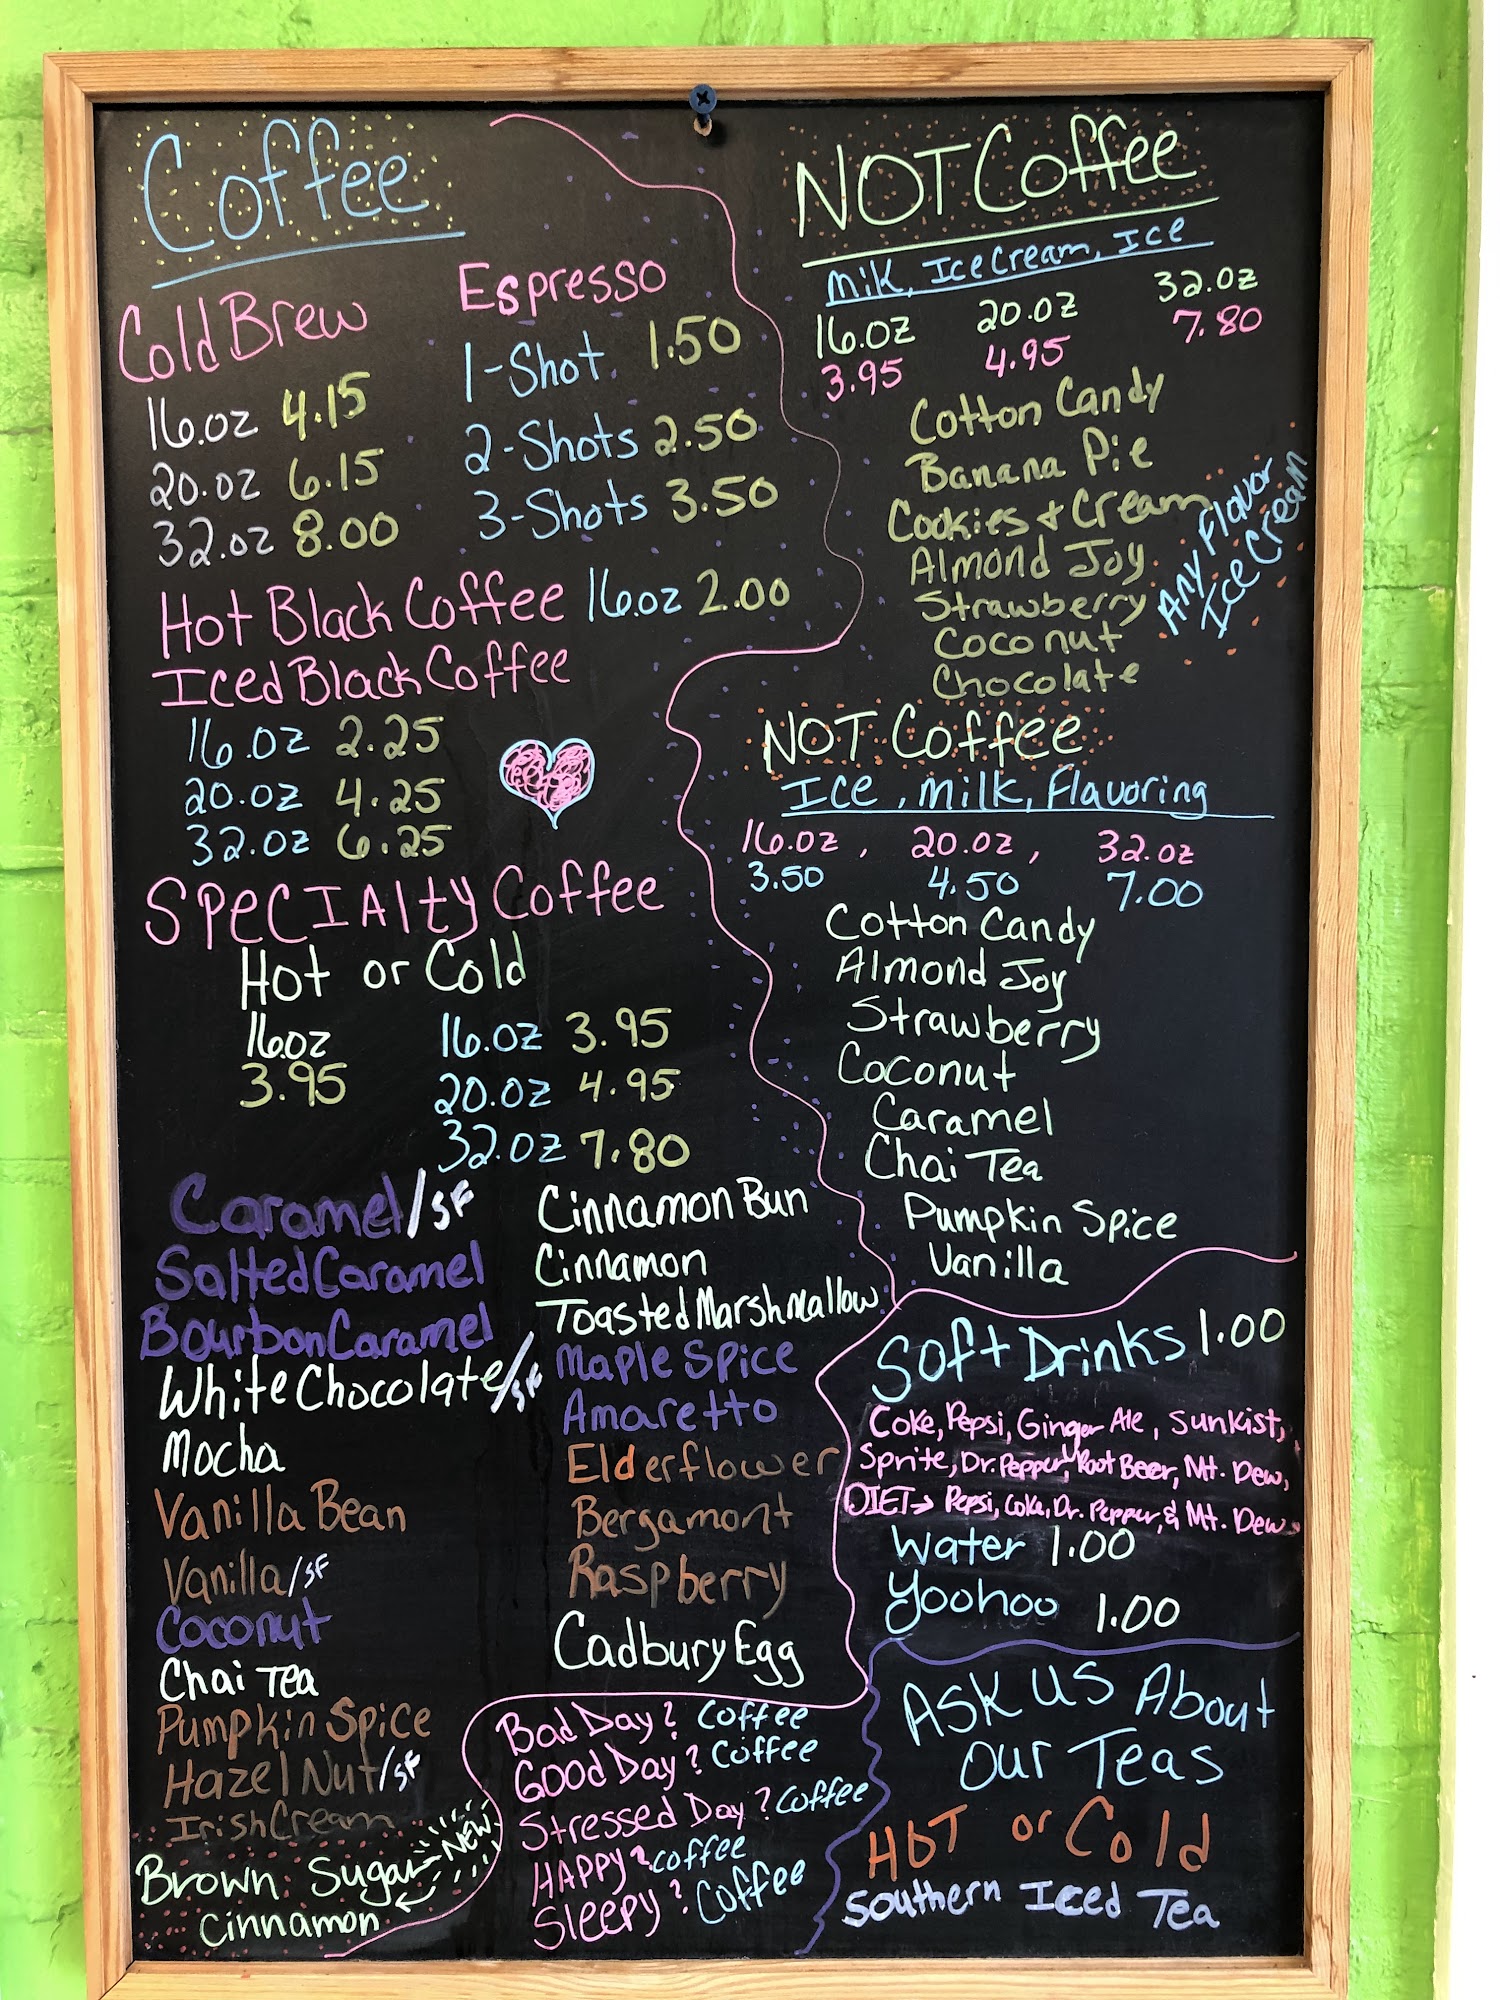 Coffee
Cold Brew
16.oz 4.15
20.oz 6.15
32.oz 8.00
Espresso
1-Shot. 1.50
2-Shots 2.50
3-Shots 3.50
Hot Black Coffee 16.oz 2.00
Iced Black Coffee
16.oz 2.25
20.oz 4.25
32.oz 6.25
Specialty Coffee
Hot or Cold
16.oz
3.95
16.oz 3.95
20.oz 4.95
32.oz 7.80
Caramel/SF
Salted Caramel
Bourbon Caramel
White Chocolate/SF
Mocha
Vanilla Bean
Vanilla/SF
Coconut
Chai Tea
Pumpkin Spice
Hazel Nut/SF
Irish Cream
Brown Sugar NEW
Cinnamon
Cinnamon Bun
Cinnamon
Toasted Marshmallow
Maple Spice
Amaretto
Elderflower
Bergamont
Raspberry
Cadbury Egg
Bad Day? Coffee
Good Day? Coffee
Stressed Day? Coffee
Happy? Coffee
Sleepy? Coffee
NOT Coffee
Milk, Ice Cream, Ice
16.oz 20.oz 32.oz
3.95 4.95 7.80
Cotton Candy
Banana Pie
Cookies & Cream
Almond Joy
Strawberry
Coconut
Chocolate
Any Flavor
Ice Cream
NOT Coffee
Ice, Milk, Flavoring
16.oz, 20.oz, 32.oz
3.50 4.50 7.00
Cotton Candy
Almond Joy
Strawberry
Coconut
Caramel
Chai Tea
Pumpkin Spice
Vanilla
Soft Drinks 1.00
Coke, Pepsi, Ginger Ale, Sunkist,
Sprite, Dr. Pepper, Root Beer, Mt. Dew,
DIET→ Pepsi, Coke, Dr. Pepper, & Mt. Dew
Water 1.00
Yoohoo 1.00
Ask us About
Our Teas
HOT or Cold
Southern Iced Tea